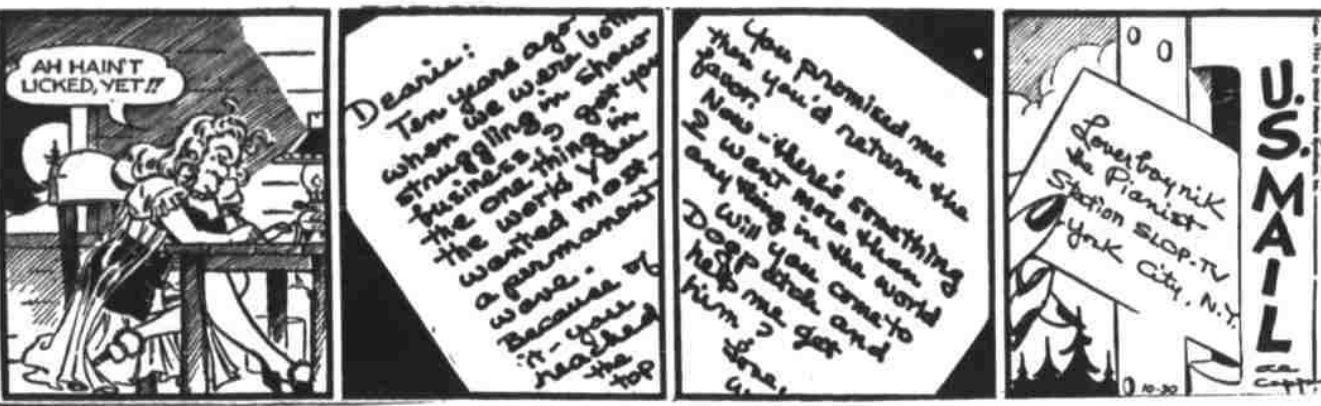 AH HAIN'T
LICKED, YET!!
Dearie:
Ten years ago
when we were both
struggling in show
business, I got you
the one thing in
the world you
wanted most -
a purmanent
wave -
Because of
it - you
reached
the
top
You promised me
then you'd return the
favor.
Now - there's something
I want more than
anything in the world
Will you come to
Dogpatch and
help me get
him?
Love,
Loverboynik
the Pianist
Station SLOP-TV
York City, N.Y.
U.S. MAIL
AL
CAPP
10-30